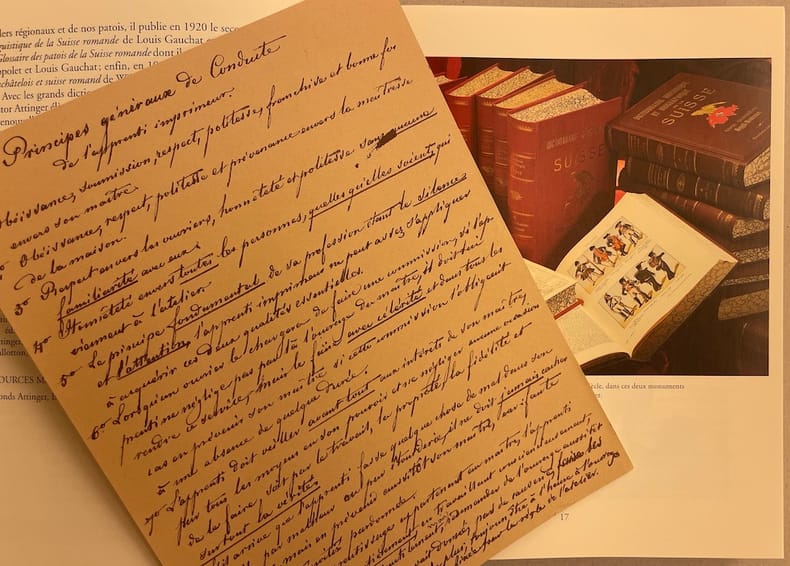 lers régionaux et de nos patois, il publie en 1920 le sec
guistique de la Suisse romande de Louis Gauchat
Glossaire des patois de la Suisse romande dont il
ppolet et Louis Gauchat ; enfin, en
châtelois et suisse romand de W
Avec les grands diction
tor Attinger
enou
Principes généraux de Conduite
de l'apprenti imprimeur.
Obéissance, soumission, respect, politesse, franchise et bonne foi
envers son maître.
Obéissance, respect, politesse et prévenance envers la maîtresse
de la maison.
3° Respect envers les ouvriers, honnêteté et politesse sans aucune
familiarité avec eux.
4° Honnêteté envers toutes les personnes, quelles qu'elles soient, qui
viennent à l'atelier.
5° Le principe fondamental de sa profession étant le silence
et l'attention, l'apprenti imprimeur ne peut assez s'appliquer
à acquérir ces deux qualités essentielles.
6° Lorsqu'un ouvrier le chargera de faire une commission, si l'ap
prenti ne néglige pas par là l'ouvrage du maître, il doit lui
rendre ce service, mais le faire avec célérité et dans tous les
cas en prévenir son maître si cette commission l'obligeait
à une absence de quelque durée.
7° L'apprenti doit veiller avant tout aux intérêts de son maître,
par tous les moyens en son pouvoir et ne négliger aucune occasion
de le faire, soit par le travail, la propreté, la fidélité et
surtout la vérité.
l'apprenti fasse quelque chose de mal dans son
par malheur ou par étourderie, il ne doit jamais cacher
mais en prévenir aussitôt son maître,
pardonnée.
appartenant au maître, l'apprenti
en travaillant consciencieusement,
demander de l'ouvrage aussitôt
SUISSE
SUISSE
OURCES M
onds Attinger,
allotton,
ècle, dans ces deux monuments
17